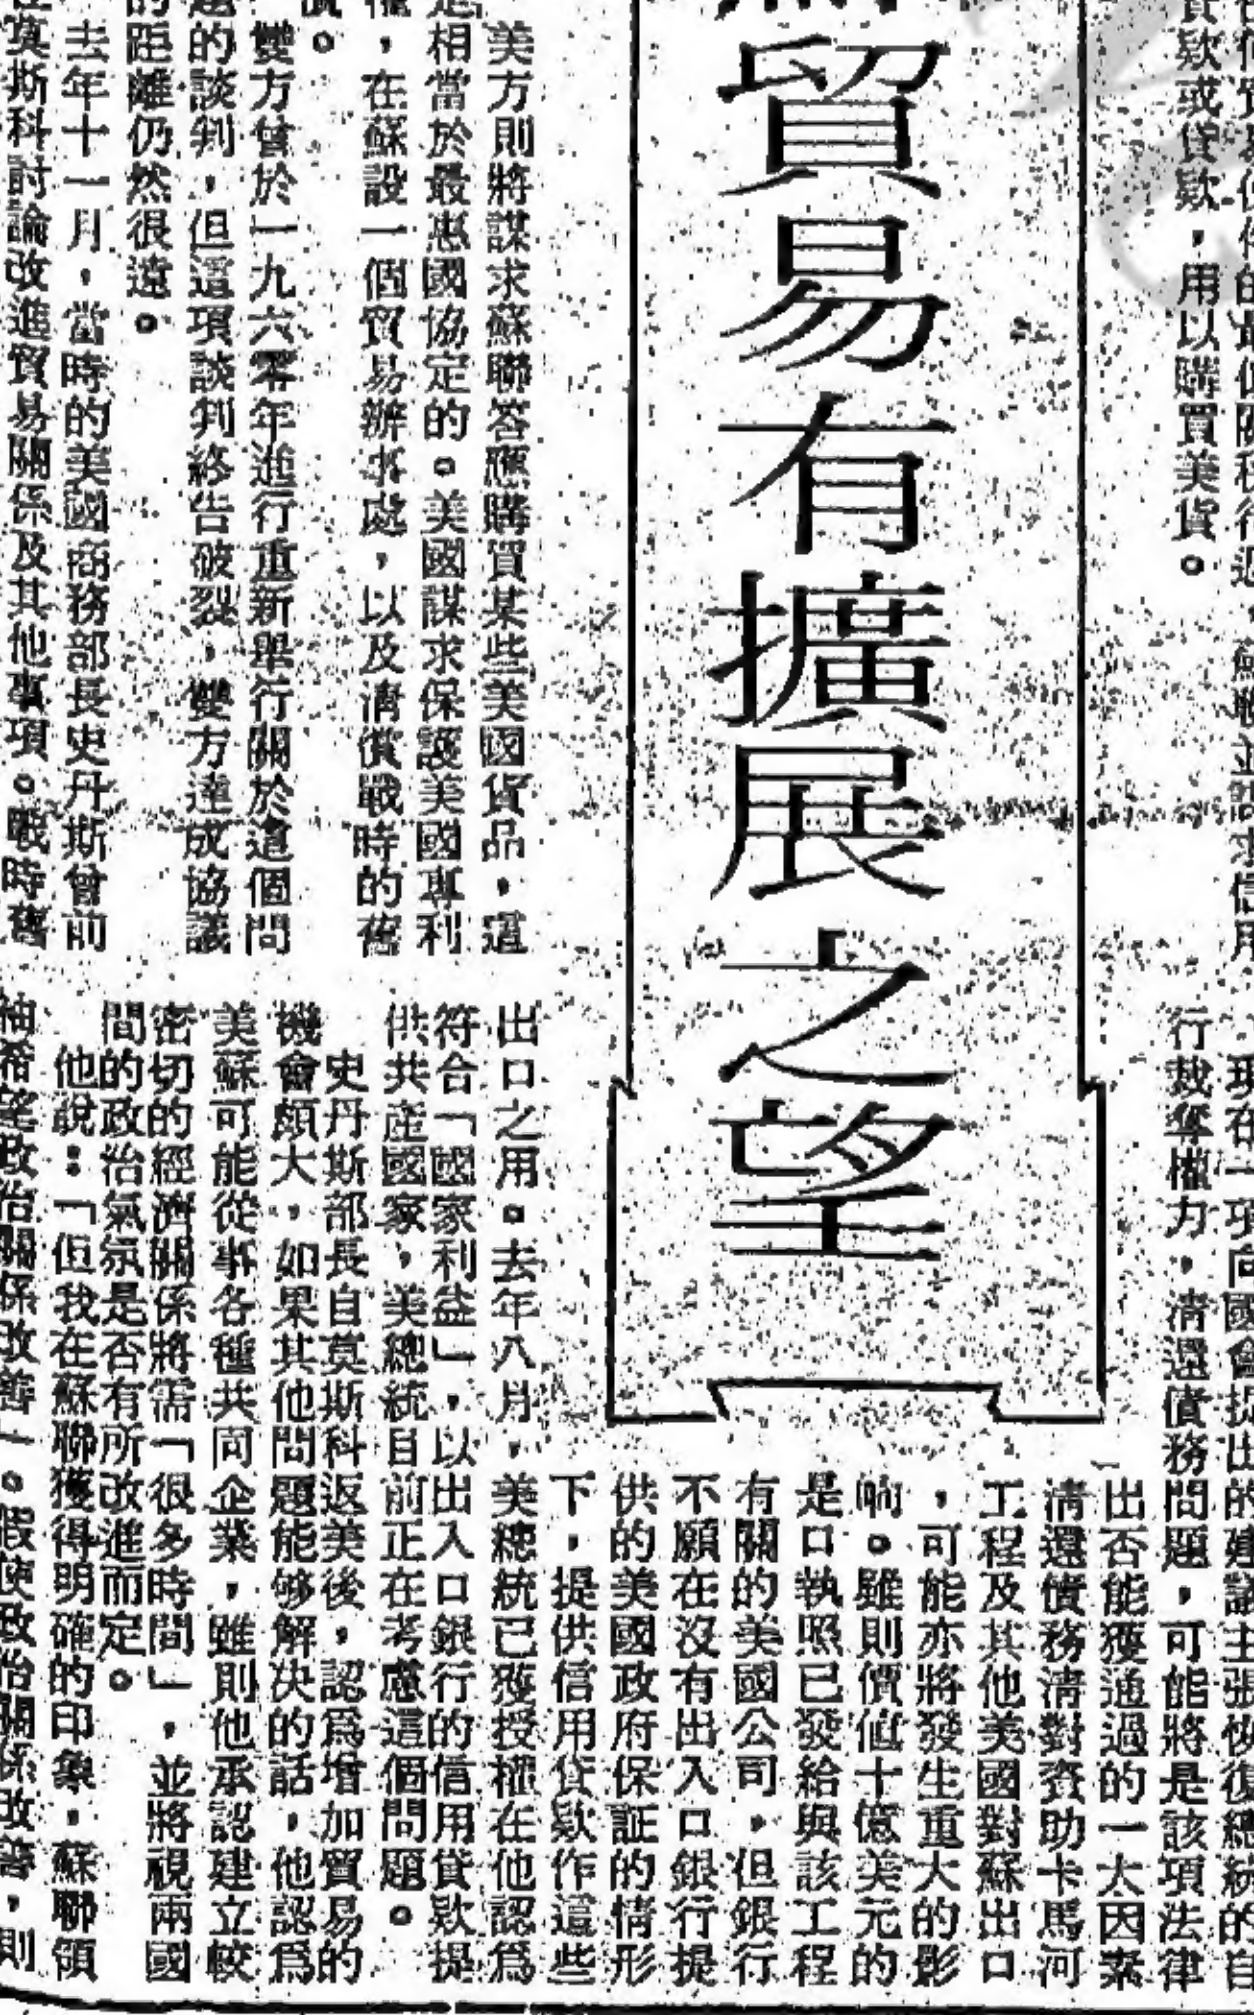 貿易有擴展之望
貸款或貸款，用以購買美貨。
美方則將謀求蘇聯答應購買某些美國貨品，這
是相當於最惠國協定的。美國謀求保護美國專利
權，在蘇設一個貿易辦事處，以及清償戰時的舊
債。
雙方曾於一九六零年進行重新舉行關於這個問
題的談判，但這項談判終告破裂，雙方達成協議
的距離仍然很遠。
去年十一月，當時的美國商務部長史丹斯曾前
往莫斯科討論改進貿易關係及其他事項。戰時舊
現在一項向國會提出的建議主張恢復總統的自
行裁奪權力，清還債務問題，可能將是該項法律
出否能獲通過的一大因素
清還債務清對資助卡馬河
工程及其他美國對蘇出口
，可能亦將發生重大的影
响。雖則價值十億美元的
是口執照已發給與該工程
有關的美國公司，但銀行
不願在沒有出入口銀行提
供的美國政府保証的情形
下，提供信用貸款作這些
出口之用。去年八月，美總統已獲授權在他認爲
符合「國家利益」，以出入口銀行的信用貸款提
供共產國家，美總統目前正在考慮這個問題。
史丹斯部長自莫斯科返美後，認爲增加貿易的
機會頗大，如果其他問題能够解决的話，他認爲
美蘇可能從事各種共同企業，雖則他承認建立較
密切的經濟關係將需「很多時間」，並將視兩國
間的政治氣氛是否有所改進而定。
他說：「但我在蘇聯獲得明確的印象，蘇聯領
袖希望政治關係改善」。假使政治關係改善，則